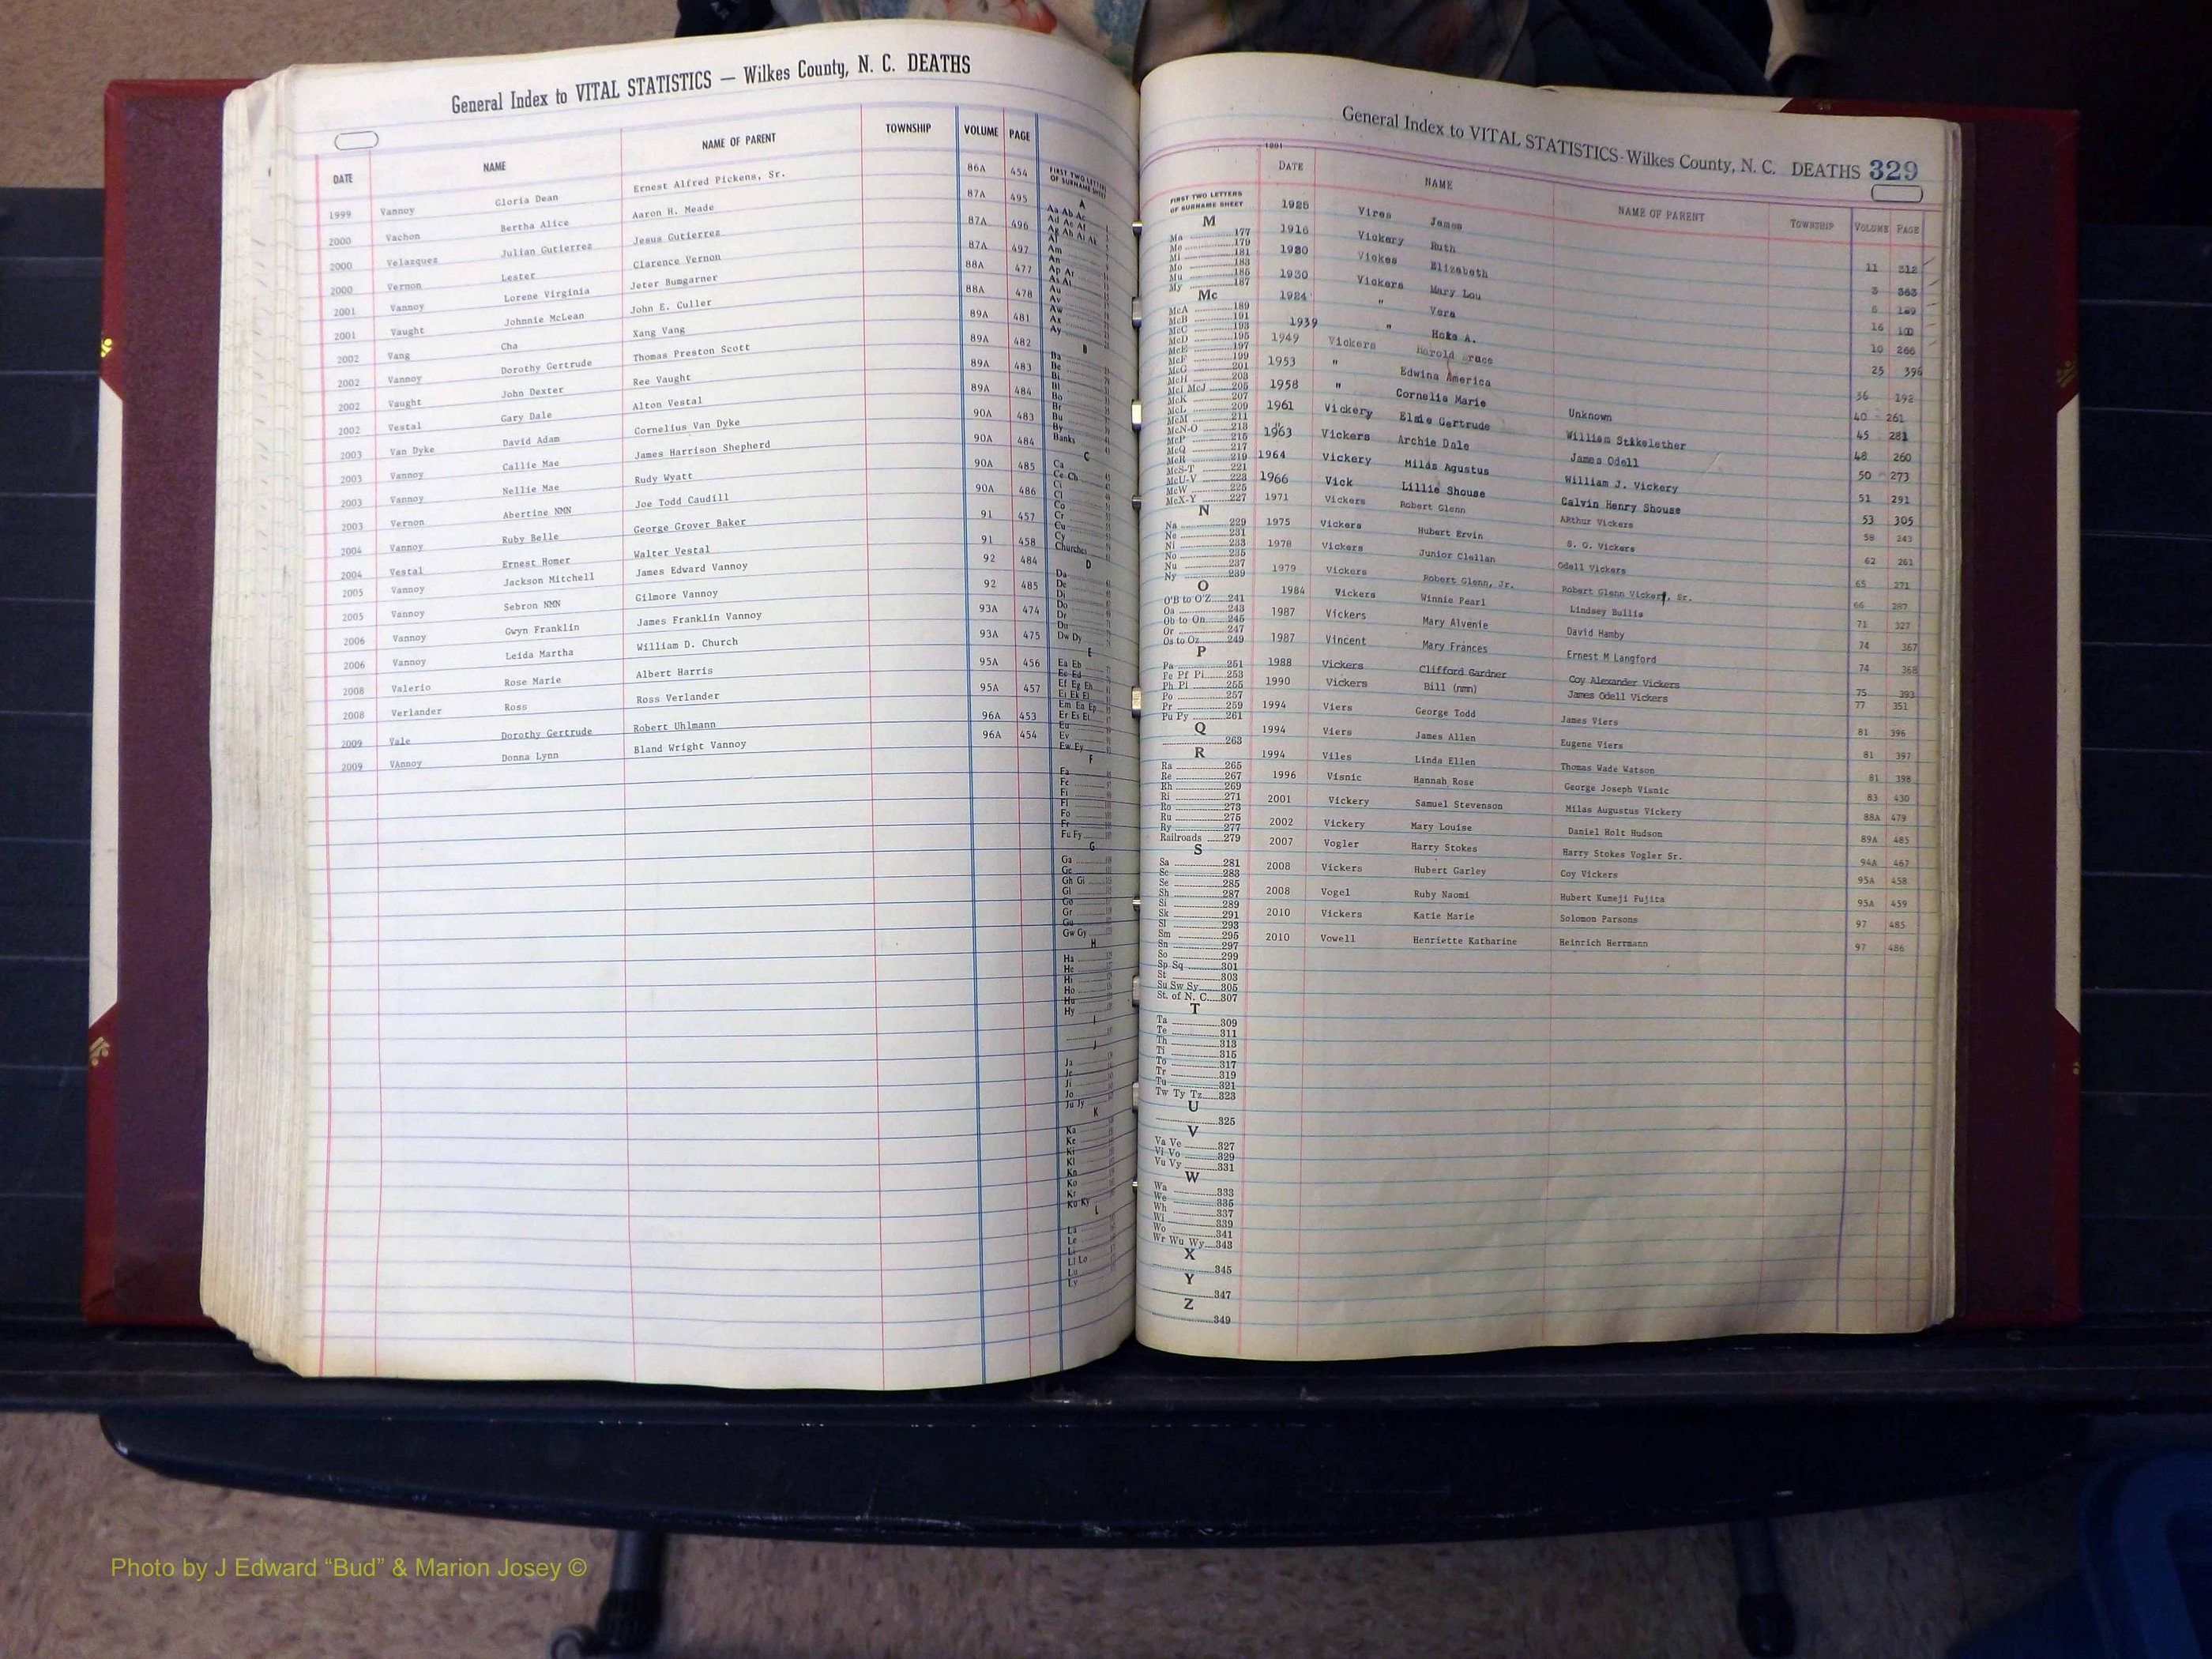 General Index to VITAL STATISTICS — Wilkes County, N. C. DEATHS
DATE NAME NAME OF PARENT TOWNSHIP VOLUME PAGE
1999 Vannoy Gloria Dean Ernest Alfred Pickens, Sr. 86A 454
2000 Vachon Bertha Alice Aaron H. Meade 87A 495
2000 Velazquez Julian Gutierrez Jesus Gutierrez 87A 496
2000 Vernon Lester Clarence Vernon 87A 497
2001 Vannoy Lorene Virginia Jeter Bumgarner 88A 477
2001 Vaught Johnnie McLean John E. Culler 88A 478
2002 Vang Cha Xang Vang 89A 481
2002 Vannoy Dorothy Gertrude Thomas Preston Scott 89A 482
2002 Vaught John Dexter Ree Vaught 89A 483
2002 Vestal Gary Dale Alton Vestal 89A 484
2003 Van Dyke David Adam Cornelius Van Dyke 90A 483
2003 Vannoy Callie Mae James Harrison Shepherd 90A 484
2003 Vannoy Nellie Mae Rudy Wyatt 90A 485
2003 Vernon Abertine NMN Joe Todd Caudill 90A 486
2004 Vannoy Ruby Belle George Grover Baker 91 457
2004 Vestal Ernest Homer Walter Vestal 91 458
2005 Vannoy Jackson Mitchell James Edward Vannoy 92 484
2005 Vannoy Sebron NMN Gilmore Vannoy 92 485
2006 Vannoy Gwyn Franklin James Franklin Vannoy 93A 474
2006 Vannoy Leida Martha William D. Church 93A 475
2008 Valerio Rose Marie Albert Harris 95A 456
2008 Verlander Ross Ross Verlander 95A 457
2009 Vale Dorothy Gertrude Robert Uhlmann 96A 453
2009 VAnnoy Donna Lynn Bland Wright Vannoy 96A 454
FIRST TWO LETTERS
OF SURNAME SHEET
A
Aa Ab Ac
Ad Ae Af
Ag Ah Ai Ak
Al
Am
An
Ap Ar
As At
Au
Av
Aw
Ax
Ay
B
Ba
Be
Bi
Bl
Bo
Br
Bu
By
Banks
C
Ca
Ce Ch
Ci
Cl
Co
Cr
Cu
Cy
Churches
D
Da
De
Di
Do
Dr
Du
Dw Dy
E
Ea Eb
Ec Ed
Ef Eg Eh
Ei Ek El
Em En Ep
Er Es Et
Eu
Ev
Ew Ey
F
Fa
Fe
Fi
Fl
Fo
Fr
Fu Fy
G
Ga
Ge
Gh Gi
Gl
Go
Gr
Gu
Gw Gy
H
Ha
He
Hi
Ho
Hu
Hy
I
J
Ja
Je
Ji
Jo
Ju Jy
K
Ka
Ke
Ki
Kl
Kn
Ko
Kr
Ku Ky
L
La
Le
Li
Ll Lo
Lu
Ly
General Index to VITAL STATISTICS - Wilkes County, N. C. DEATHS 329
DATE NAME NAME OF PARENT TOWNSHIP VOLUME PAGE
FIRST TWO LETTERS
OF SURNAME SHEET
M
Ma 177
Me 179
Mi 181
Mo 183
Mu 185
My 187
Mc
McA 189
McB 191
McC 193
McD 195
McE 197
McF 199
McG 201
McH 203
McI McJ 205
McK 207
McL 209
McM 211
McN-O 213
McP 215
McQ 217
McR 219
McS-T 221
McU-V 223
McW 225
McX-Y 227
N
Na 229
Ne 231
Ni 233
No 235
Nu 237
Ny 239
O
O'B to O'Z 241
Oa 243
Ob to On 245
Or 247
Os to Oz 249
P
Pa 251
Pe Pf Pi 253
Ph Pl 255
Po 257
Pr 259
Pu Py 261
Q
263
R
Ra 265
Re 267
Rh 269
Ri 271
Ro 273
Ru 275
Ry 277
Railroads 279
S
Sa 281
Sc 283
Se 285
Sh 287
Si 289
Sk 291
Sl 293
Sm 295
Sn 297
So 299
Sp Sq 301
St 303
Su Sw Sy 305
St. of N. C. 307
T
Ta 309
Te 311
Th 313
Ti 315
To 317
Tr 319
Tu 321
Tw Ty Tz 323
U
325
V
Va Ve 327
Vi Vo 329
Vu Vy 331
W
Wa 333
We 335
Wh 337
Wi 339
Wo 341
Wr Wu Wy 343
X
345
Y
347
Z
349
Vires James 11 312
1916 Vickery Ruth 3 363
Vickes Elizabeth
1930 Vickers Mary Lou 16 100
1924 " Vera 10 266
1939 " Hoke A. 25 396
1949 Vickers Harold 36 192
1953 " Edwina America Unknown 40 261
1958 " Cornelia Marie William Stikelether 45 281
1961 Vickery Elsie Gertrude James Odell 48 260
1963 Vickers Archie Dale William J. Vickery 50 273
1964 Vickery Milas Agustus Calvin Henry Shouse 51 291
1966 Vick Lillie Shouse Arthur Vickers 53 305
1971 Vickers Robert Glenn S. G. Vickers 58 243
1975 Vickers Hubert Ervin Odell Vickers 62 261
1978 Vickers Junior Clellan Robert Glenn Vickers, Sr. 65 271
1979 Vickers Robert Glenn, Jr. Lindsey Bullis 66 287
1984 Vickers Winnie Pearl David Hamby 71 327
1987 Vickers Mary Alvenie Ernest M Langford 74 367
1987 Vincent Mary Frances Coy Alexander Vickers 74 368
1988 Vickers Clifford Gardner James Odell Vickers 75 393
1990 Vickers Bill (nmn) 77 351
1994 Viers George Todd James Viers 81 396
1994 Viers James Allen Eugene Viers 81 397
1994 Viles Linda Ellen Thomas Wade Watson 81 398
1996 Visnic Hannah Rose George Joseph Visnic 83 430
2001 Vickery Samuel Stevenson Milas Augustus Vickery 88A 479
2002 Vickery Mary Louise Daniel Holt Hudson 89A 485
2007 Vogler Harry Stokes Harry Stokes Vogler Sr. 94A 462
2008 Vickers Hubert Garley Coy Vickers 95A 458
2008 Vogel Ruby Naomi Hubert Kumeji Fujita 95A 459
2010 Vickers Katie Marie Solomon Parsons 97 485
2010 Vowell Henriette Katharine Heinrich Herrmann 97 486
Photo by J Edward “Bud” & Marion Josey ©